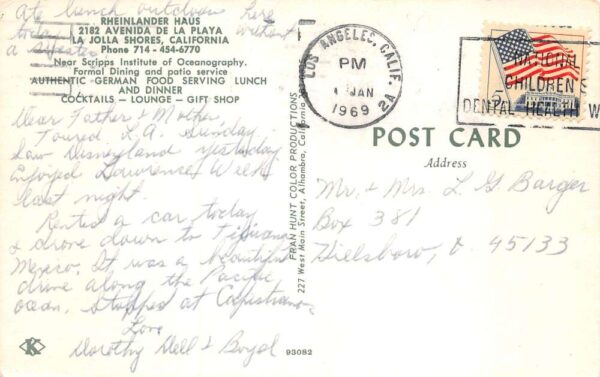 Ate lunch outdoors here
today without
a sweater
RHEINLANDER HAUS
2182 AVENIDA DE LA PLAYA
LA JOLLA SHORES, CALIFORNIA
Phone 714 - 454-6770
Near Scripps Institute of Oceanography.
Formal Dining and patio service
AUTHENTIC GERMAN FOOD SERVING LUNCH
AND DINNER
COCKTAILS — LOUNGE — GIFT SHOP
Dear Father & Mother,
Toured L.A. Sunday,
Saw Disneyland yesterday
Enjoyed Lawrence Welk
last night.
Rented a car today
& drove down to Tijuana
Mexico. It was a beautiful
drive along the Pacific
ocean. Stopped at Capistrano.
Love
Dorothy Dell & Boyd
FRAN HUNT COLOR PRODUCTIONS
227 West Main Street, Alhambra, California
K
93082
LOS ANGELES, CALIF.
PM
JAN
1969
2A
NATIONAL
CHILDREN'S
DENTAL HEALTH W
5c
POST CARD
Address
Mr. & Mrs. L G Barger
Box 381
Hillsboro, O. 45133